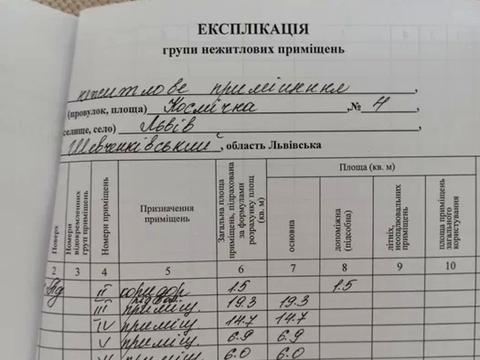 ЕКСПЛІКАЦІЯ
групи нежитлових приміщень
нежитлове приміщення,
(провулок, площа) Космічна, № 4,
селище, село) Львів,
Шевченківський, область Львівська
Поверх
Номери відокремлених груп приміщень
Номери приміщень
Призначення приміщень
Загальна площа приміщень, підрахована за формулами розрахунку площ (кв. м)
Площа (кв. м)
основна
допоміжна (підсобна)
літніх, неопалювальних приміщень
площа приміщень загального користування
2 3 4 5 6 7 8 9 10
II коридор 1.5 1.5
III приміщ. 19.3 19.3
IV приміщ. 14.7 14.7
V приміщ. 6.9 6.9
приміщ. 6.0 6.0